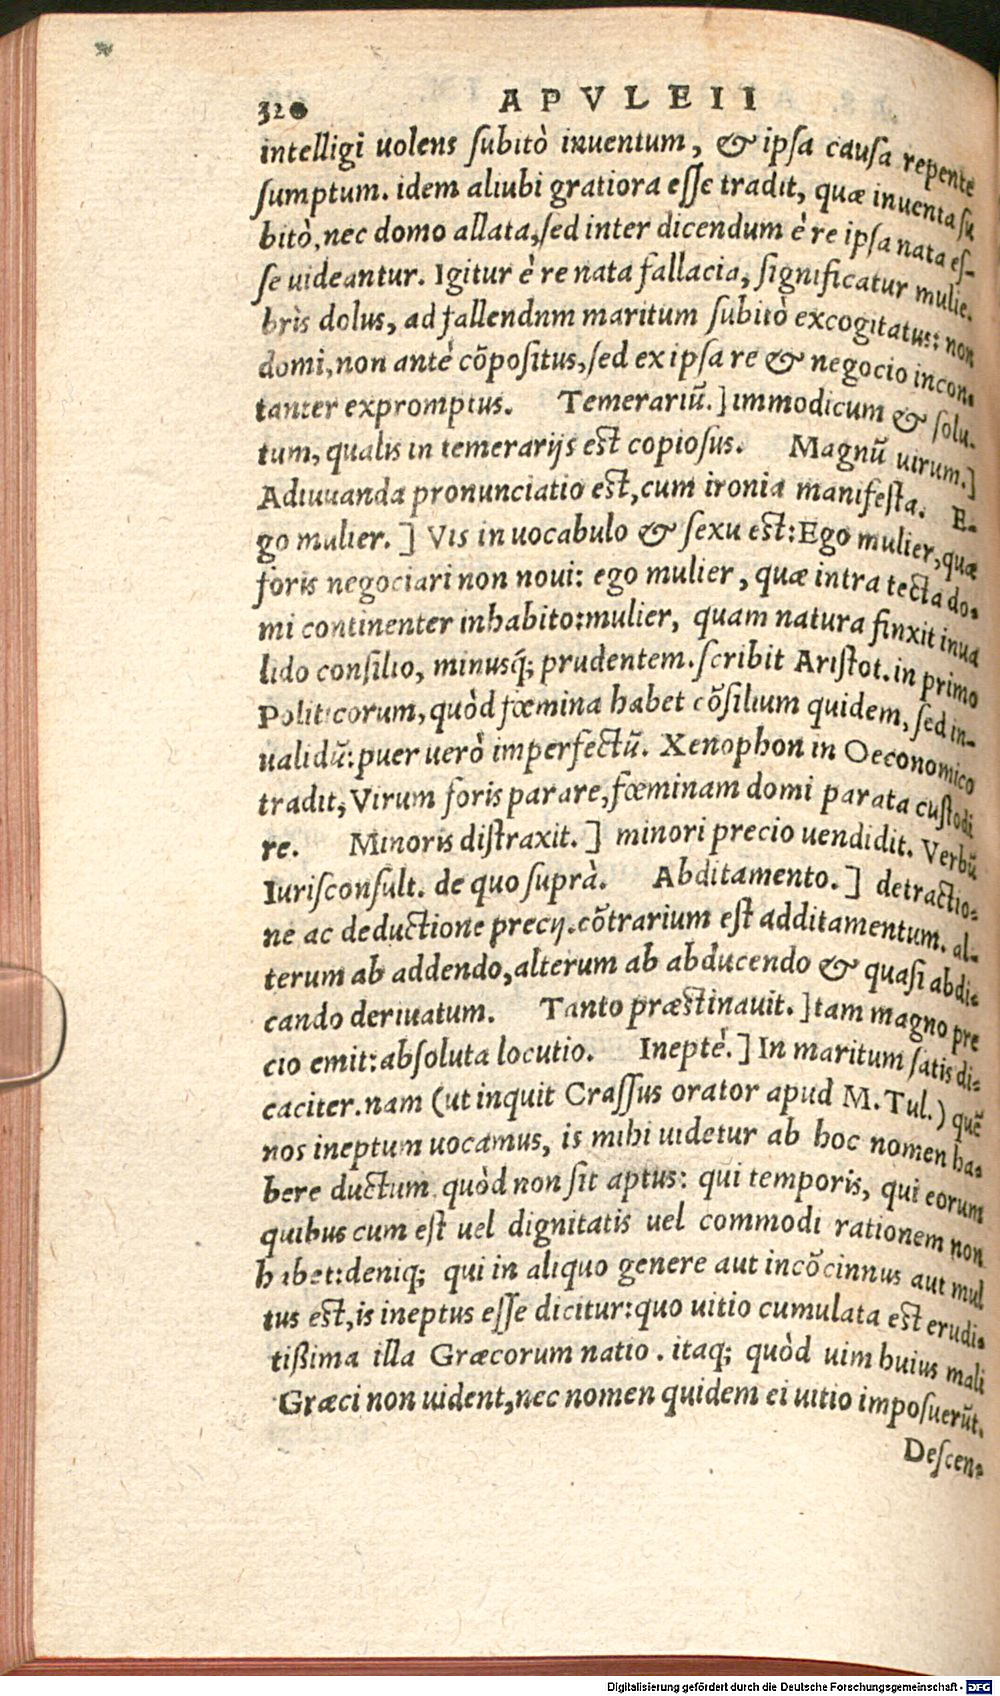 320 APVLEII
intelligi uolens ſubitò inuentum, & ipſa cauſa repente
ſumptum. idem aliubi gratiora eſſe tradit, quæ inuenta ſu
bitò, nec domo allata, ſed inter dicendum è re ipſa nata eſ-
ſe uideantur. Igitur è re nata fallacia, ſignificatur mulie-
bris dolus, ad fallendnm maritum ſubitò excogitatus: non
domi, non antè cōpoſitus, ſed ex ipſa re & negocio incon-
tanter expromptus. Temerariū.] immodicum & ſolu-
tum, qualis in temerarijs est copioſus. Magnū uirum.]
Adiuuanda pronunciatio est, cum ironia manifeſta. E-
go mulier.] Vis in uocabulo & ſexu est: Ego mulier, quæ
foris negociari non noui: ego mulier, quæ intra tecta do-
mi continenter inhabito: mulier, quam natura finxit inua
lido conſilio, minusq́; prudentem. ſcribit Ariſtot. in primo
Politicorum, quòd fœmina habet cōſilium quidem, ſed in-
ualidū: puer uerò imperfectū. Xenophon in Oeconomico
tradit, Virum foris parare, fœminam domi parata cuſtodi
re. Minoris diſtraxit.] minori precio uendidit. Verbū
Iuriſconſult. de quo ſuprà. Abditamento.] detractio-
ne ac deductione precij. cōtrarium eſt additamentum. al-
terum ab addendo, alterum ab abducendo & quaſi abdi-
cando deriuatum. Tanto præstinauit.] tam magno pre
cio emit: abſoluta locutio. Ineptè.] In maritum ſatis di-
caciter. nam (ut inquit Craſſus orator apud M. Tul.) quē
nos ineptum uocamus, is mihi uidetur ab hoc nomen ha-
bere ductum quòd non ſit aptus: qui temporis, qui eorum
quibus cum eſt uel dignitatis uel commodi rationem non
habet: deniq; qui in aliquo genere aut incōcinnus aut mul
tus est, is ineptus eſſe dicitur: quo uitio cumulata est erudi-
tißima illa Græcorum natio. itaq; quòd uim huius mali
Græci non uident, nec nomen quidem ei uitio impoſuerūt.
Deſcen-
Digitalisierung gefördert durch die Deutsche Forschungsgemeinschaft - DFG